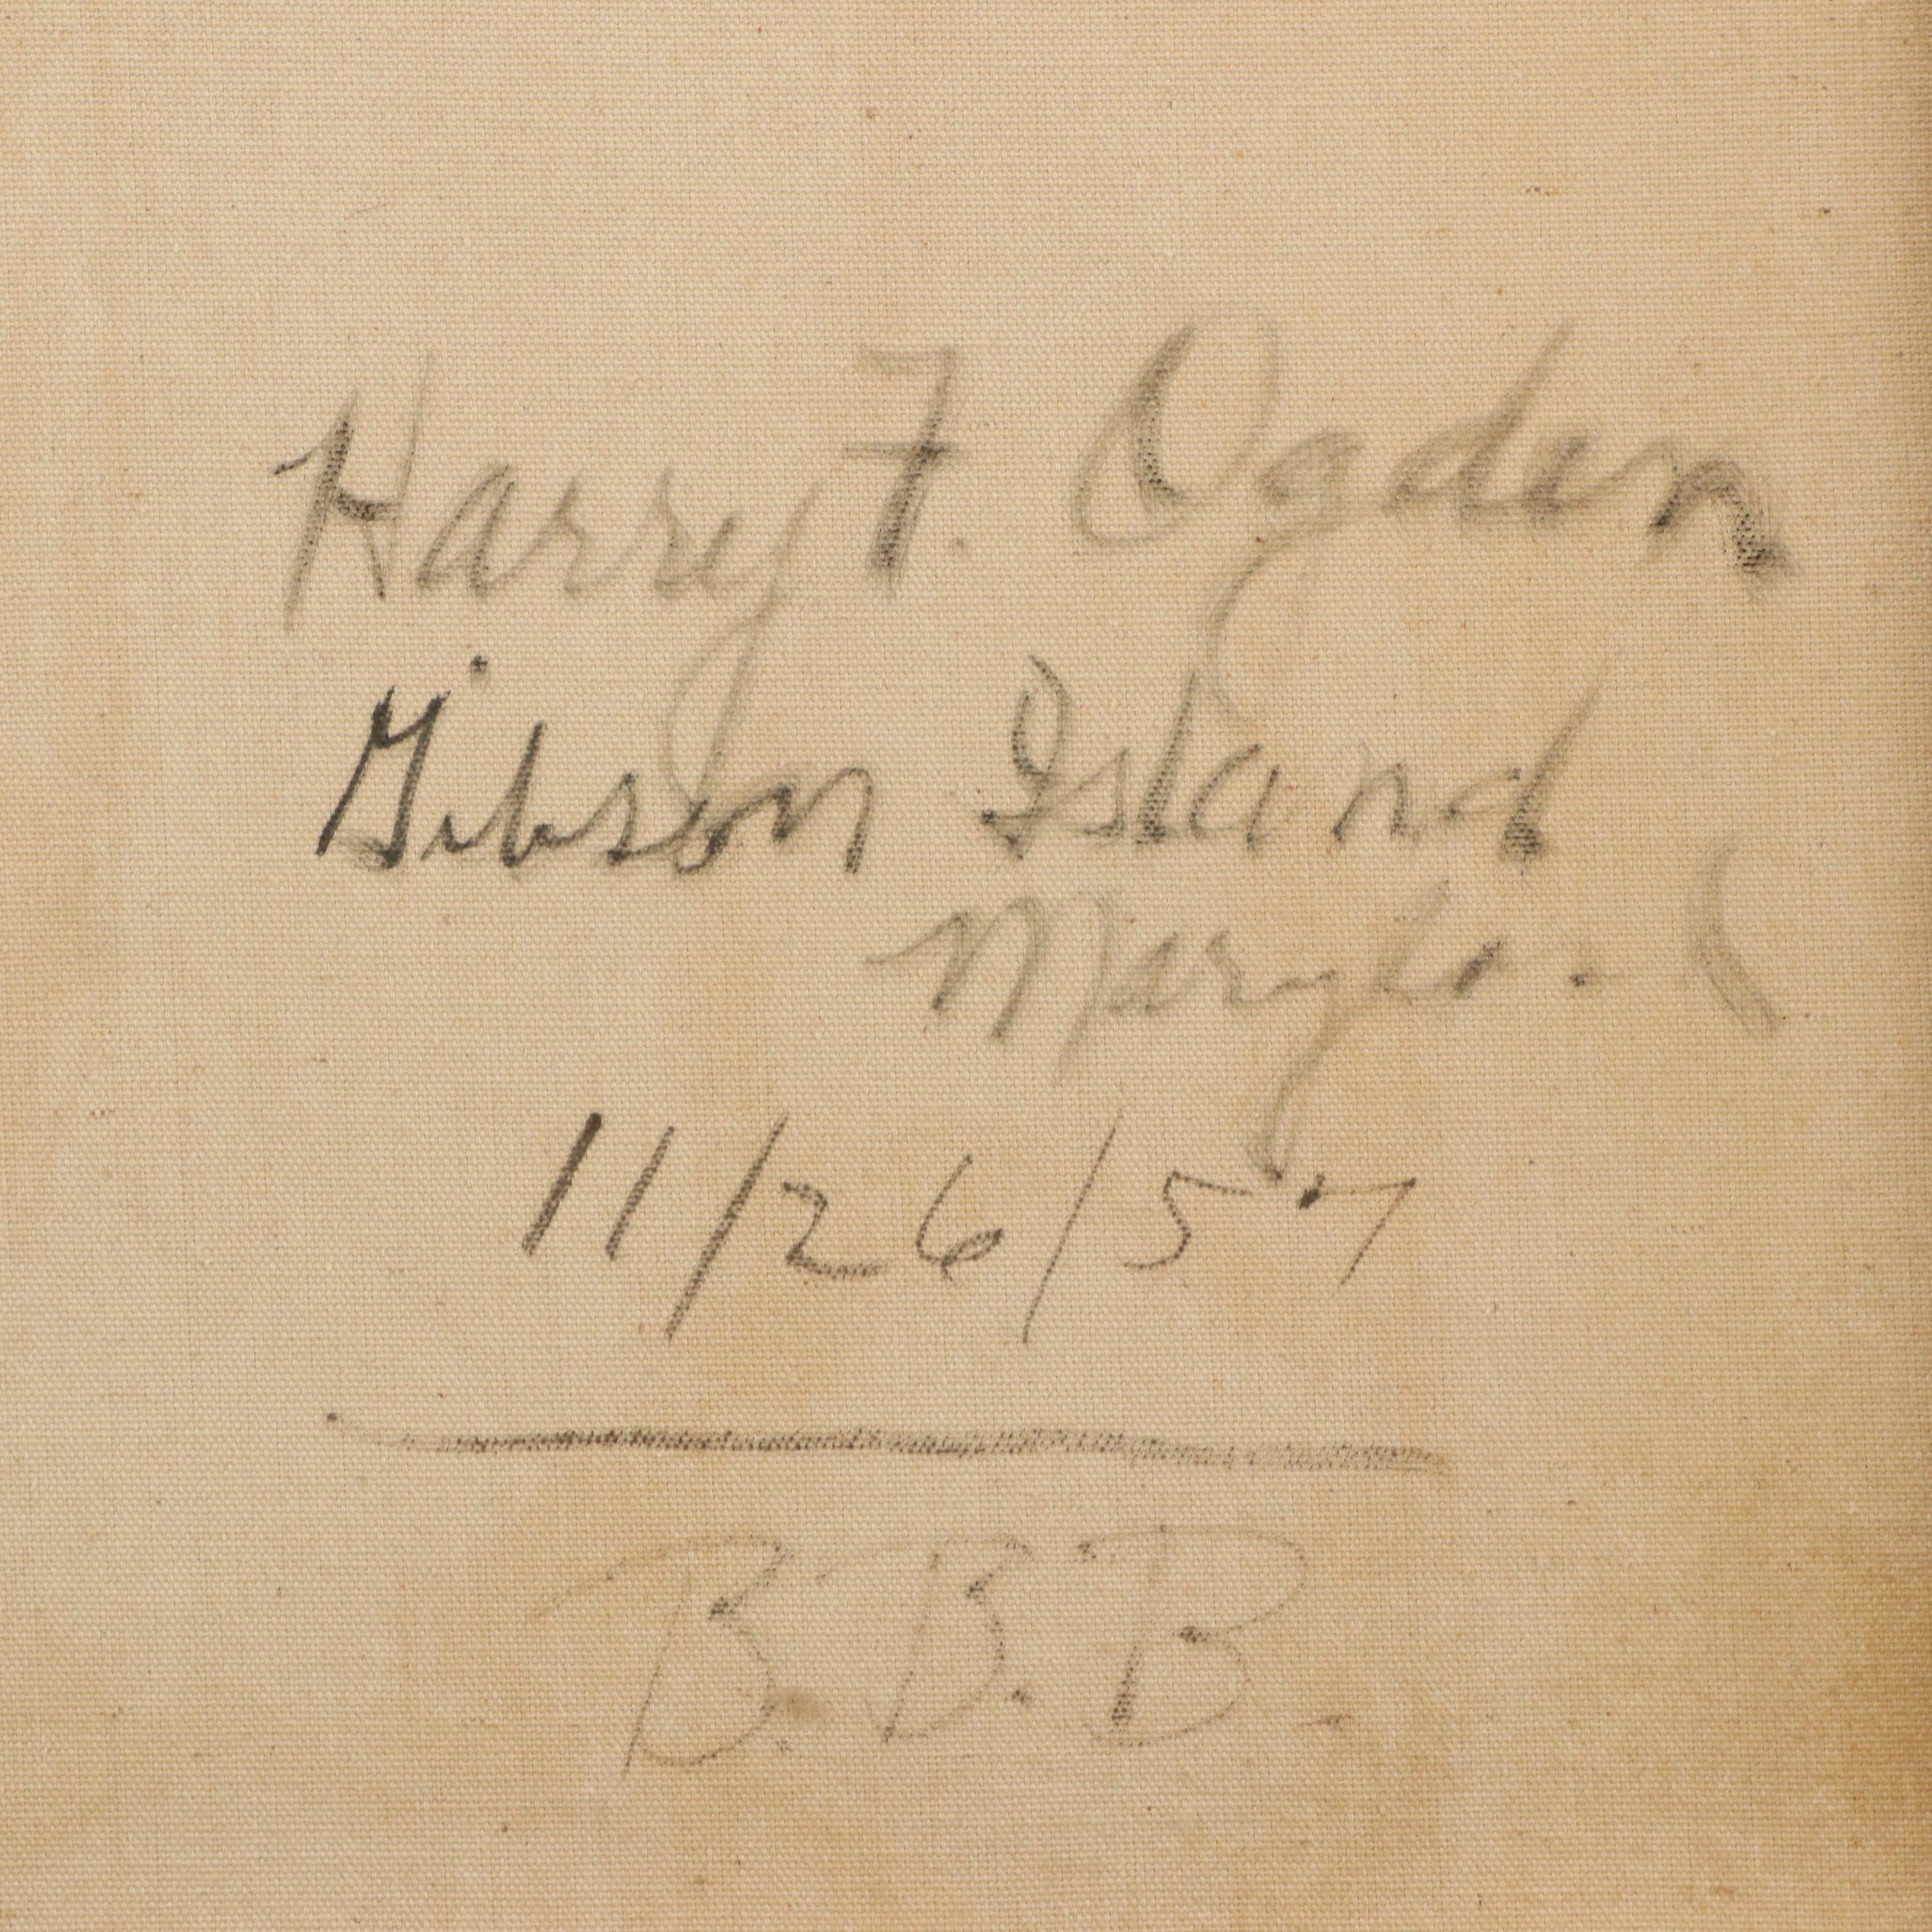 Harry F. Ogden
Gibson Island
Maryland
11/26/57
B.B.B.